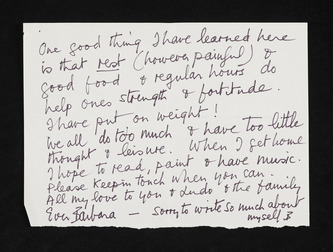 One good thing I have learned here
is that rest (however painful) &
good food & regular hours do
help ones strength & fortitude.
I have put on weight!
We all do too much & have too little
thought & leisure. When I get home
I hope to read, paint & have music.
Please keep in touch when you can.
All my love to you & Ludo & the family
Ever Barbara — sorry to write so much about
myself B